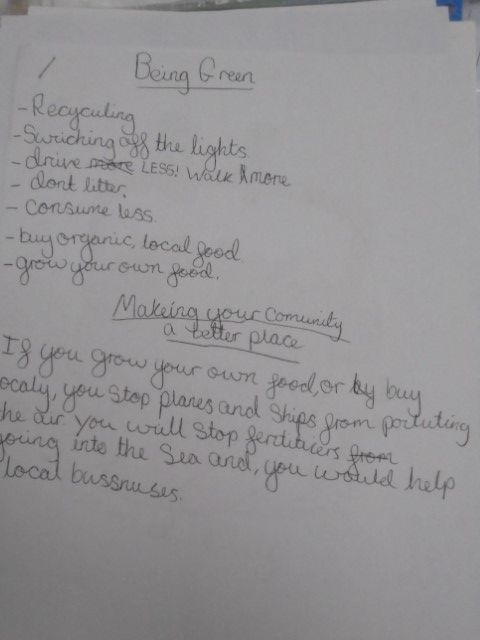 Being Green
- Recyculing
- Swiching off the lights
- drive more LESS! Walk more
- dont litter.
- Consume less.
- buy organic, local food.
- grow your own food.
Makeing your Comunity
a better place
If you grow your own food, or by buy
ocaly, you stop planes and ships from poluting
he air. You will stop fertilicers from
going into the Sea and, you would help
local bussnuses.